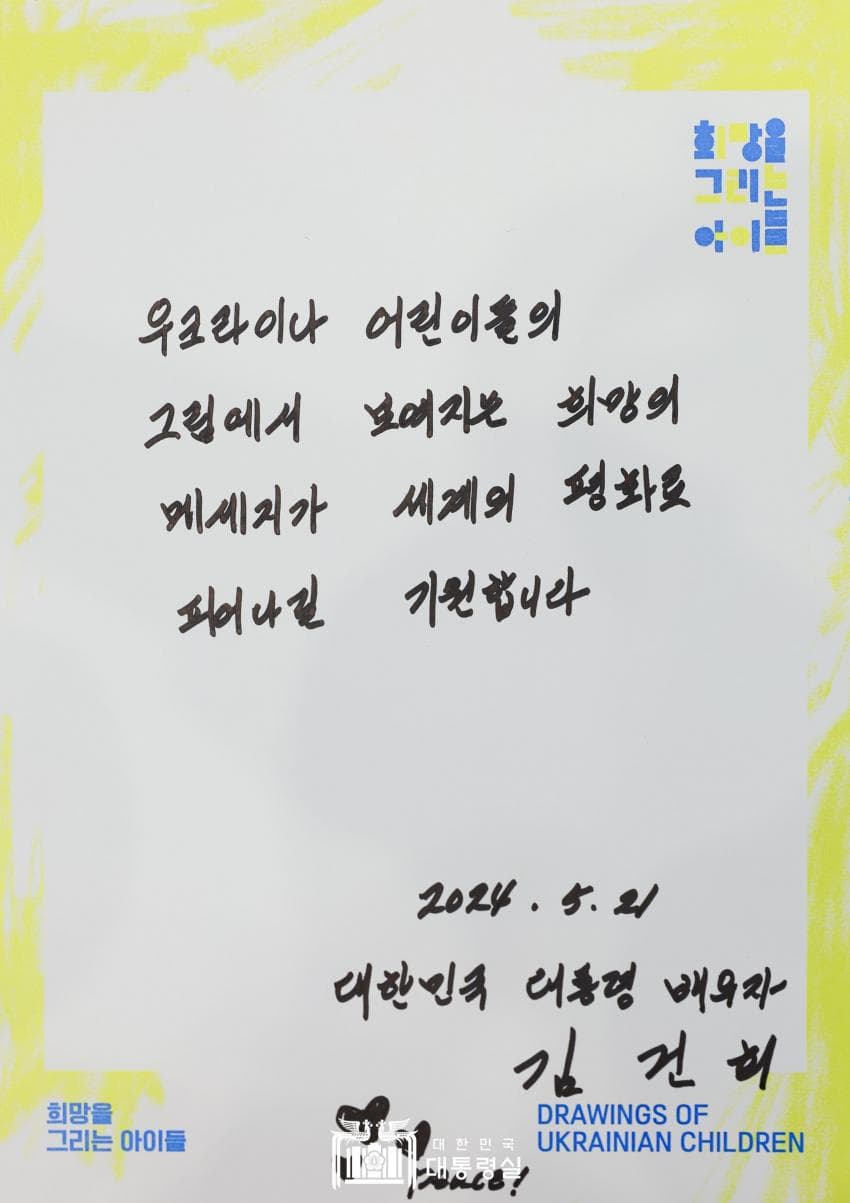 희망을
그리는
아이들
우크라이나 어린이들의
그림에서 보여지는 희망의
메세지가 세계의 평화로
피어나길 기원합니다
2024. 5. 21
대한민국 대통령 배우자
김건희
희망을
그리는 아이들
DRAWINGS OF
UKRAINIAN CHILDREN
대한민국
대통령실
peace!